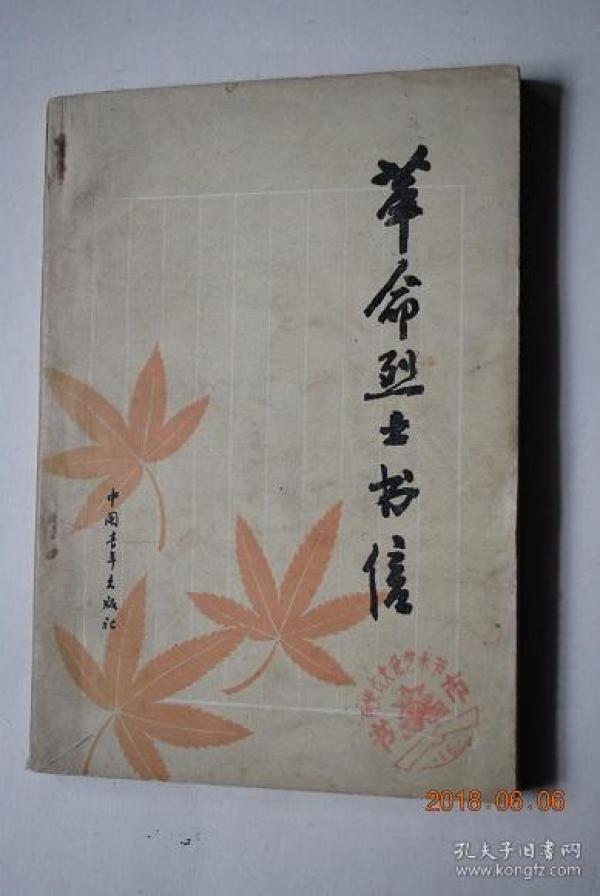 革命烈士书信
中国青年出版社
2018.06.06
孔夫子旧书网
www.kongfz.com